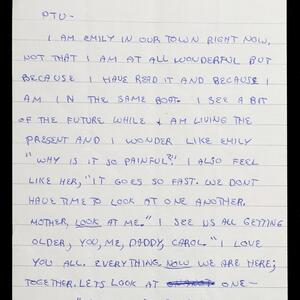 PTU-
I AM EMILY IN OUR TOWN RIGHT NOW,
NOT THAT I AM AT ALL WONDERFUL BUT
BECAUSE I HAVE READ IT AND BECAUSE I
AM IN THE SAME BOAT. I SEE A BIT
OF THE FUTURE WHILE I AM LIVING THE
PRESENT AND I WONDER LIKE EMILY
"WHY IS IT SO PAINFUL?" I ALSO FEEL
LIKE HER, "IT GOES SO FAST. WE DONT
HAVE TIME TO LOOK AT ONE ANOTHER.
MOTHER, LOOK AT ME." I SEE US ALL GETTING
OLDER, YOU, ME, DADDY, CAROL. "I LOVE
YOU ALL. EVERYTHING. NOW WE ARE HERE;
TOGETHER. LETS LOOK AT ONE-